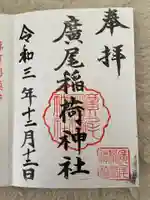 奉拝
廣尾稲荷神社
令和三年十二月十二日